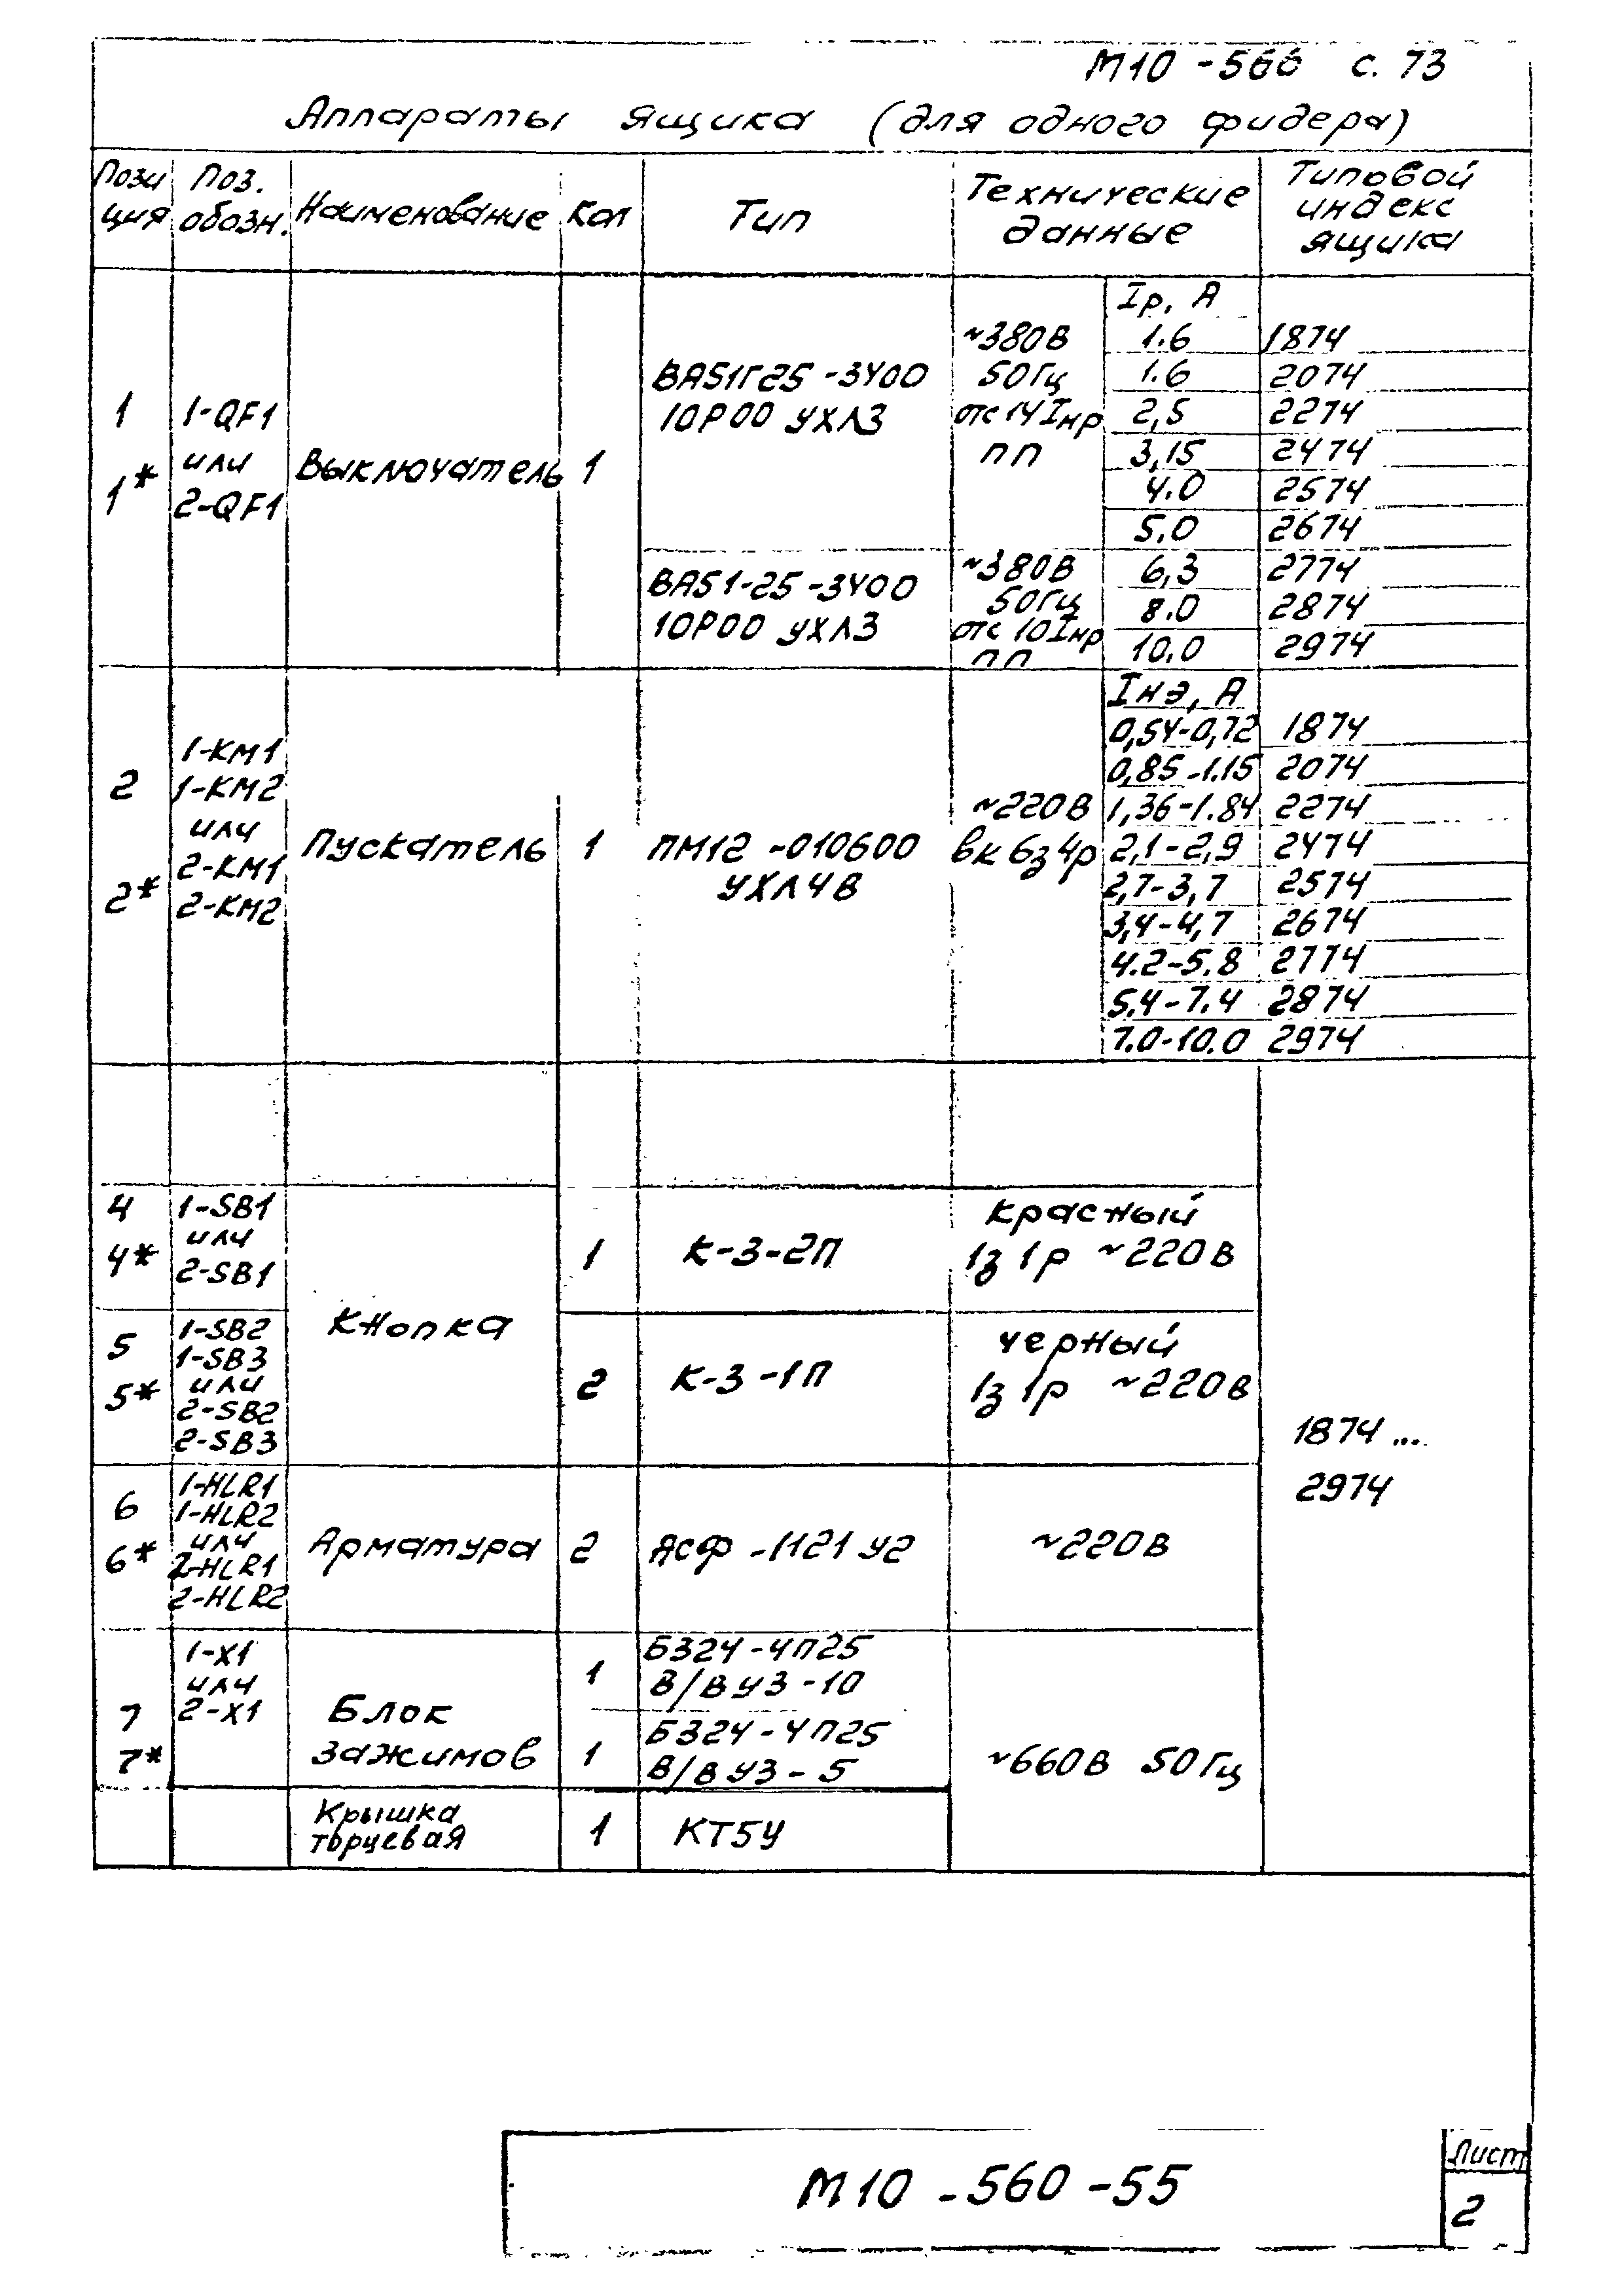 М10 - 560 с. 73
Аппараты ящика (для одного фидера)
Пози
ция
Поз.
обозн.
Наименование
Кол
Тип
Технические
данные
Типовой
индекс
ящика
1
1*
1-QF1
или
2-QF1
Выключатель
1
ВА51Г25 - 3400
10Р00 УХЛ3
~380В
50Гц
отс 14Iнр
пп
Iр, А
1.6 1874
1.6 2074
2,5 2274
3,15 2474
4.0 2574
5.0 2674
ВА51-25 - 3400
10Р00 УХЛ3
~380В
50Гц
отс 10Iнр
пп
6,3 2774
8.0 2874
10,0 2974
2
2*
1-КМ1
1-КМ2
или
2-КМ1
2-КМ2
Пускатель
1
ПМ12 -010600
УХЛ4В
~220В
вк 6з 4р
Iнэ, А
0,54-0,72 1874
0,85-1.15 2074
1,36-1.84 2274
2,1-2,9 2474
2,7-3,7 2574
3,4-4,7 2674
4.2-5.8 2774
5.4-7.4 2874
7.0-10.0 2974
4
4*
1-SB1
или
2-SB1
Кнопка
1
К-3-2П
красный
1з 1р ~220В
5
5*
1-SB2
1-SB3
или
2-SB2
2-SB3
2
К-3-1П
черный
1з 1р ~220В
1874 ...
2974
6
6*
1-HLR1
1-HLR2
или
2-HLR1
2-HLR2
Арматура
2
АСФ -1121 У2
~220В
7
7*
1-Х1
или
2-Х1
Блок
зажимов
1
БЗ24-4П25
В/ВУ3-10
1
БЗ24-4П25
В/ВУ3-5
~660В 50Гц
Крышка
торцевая
1
КТ5У
М10 - 560 - 55
Лист
2